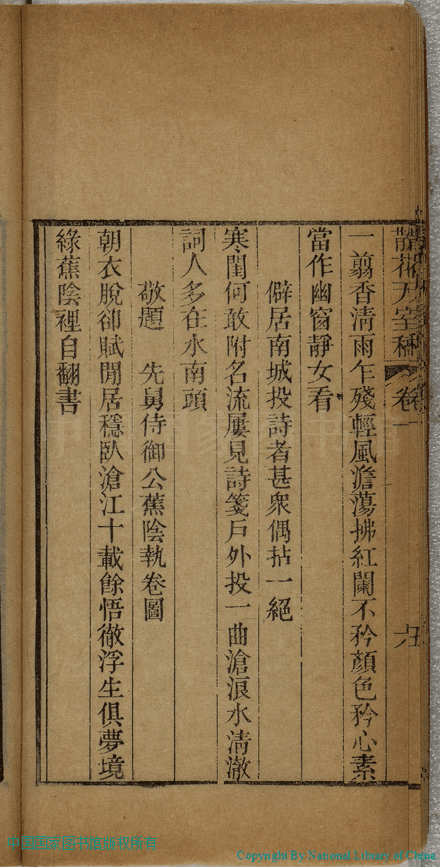 一翦香清雨乍殘輕風澹蕩拂紅闌不矜顏色矜心素
當作幽窗靜女看
僻居南城投詩者甚衆偶拈一絕
寒閨何敢附名流屢見詩箋戶外投一曲滄浪水清澈
詞人多在水南頭
敬題 先舅侍御公蕉陰執卷圖
朝衣脫卻賦閒居穩臥滄江十載餘悟徹浮生俱夢境
綠蕉陰裡自翻書
卷一
中国国家图书馆版权所有
Copyright By National Library of China